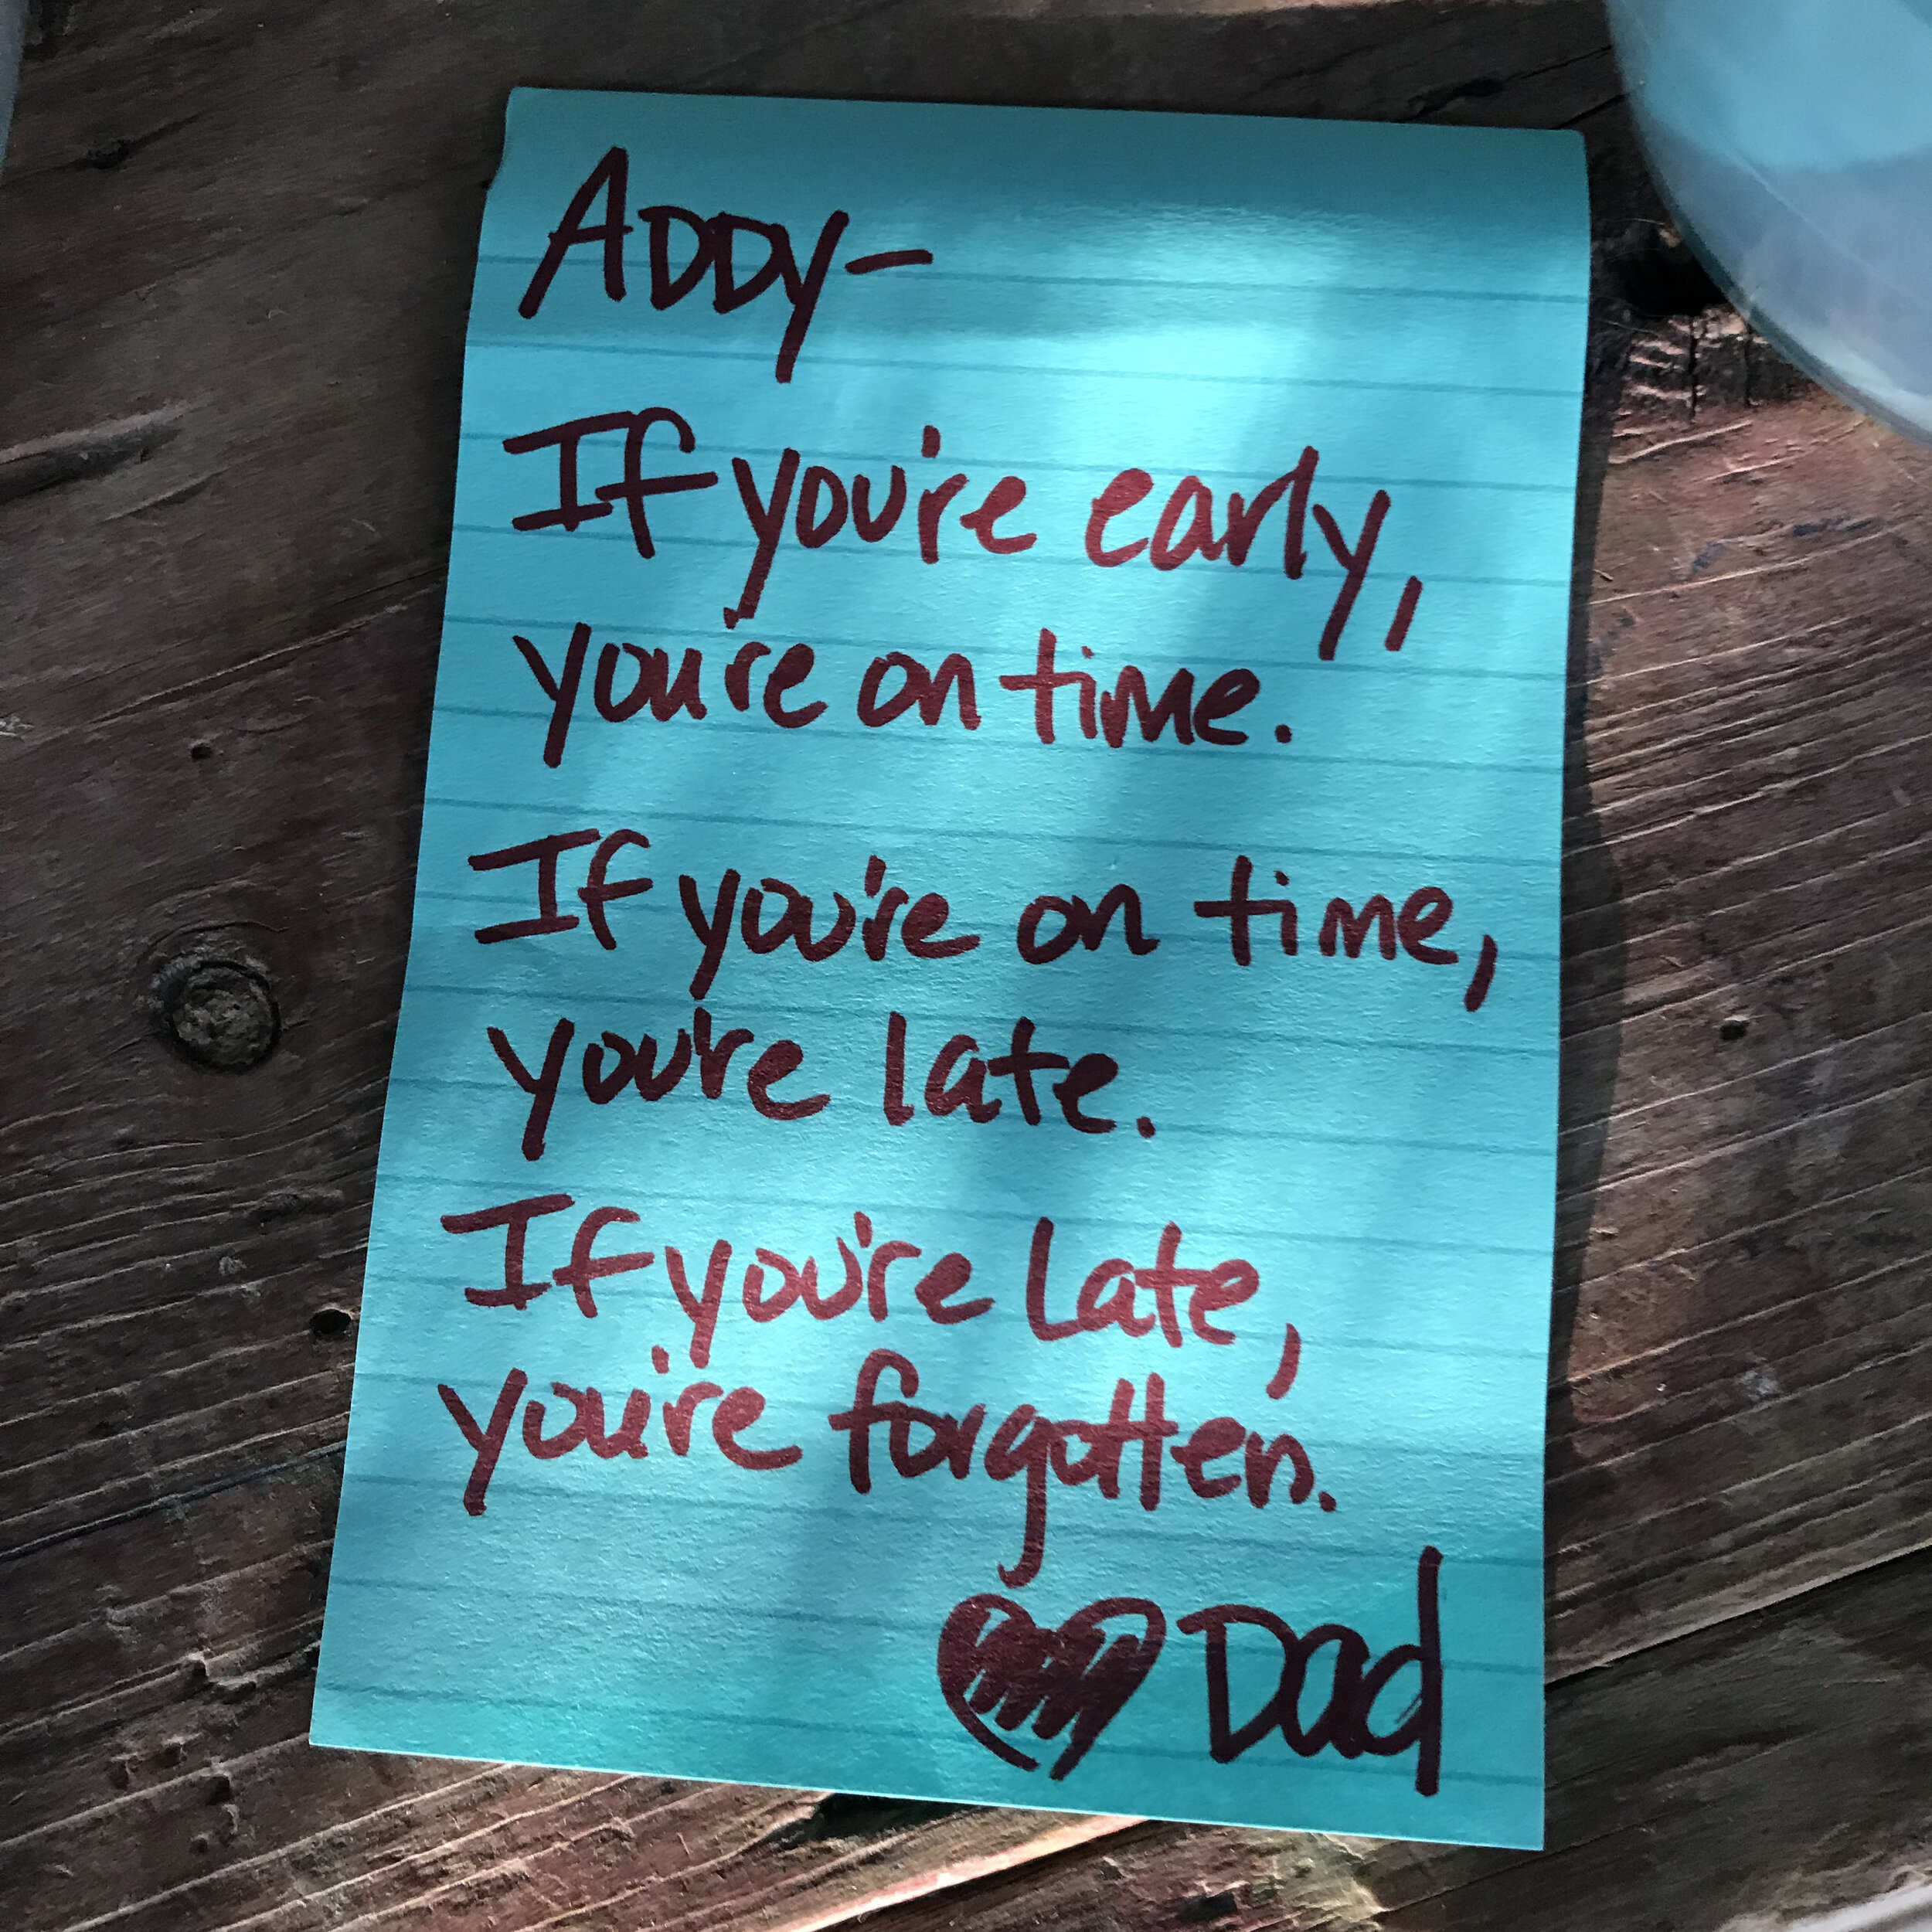 ADDY-
If you're early,
you're on time.
If you're on time,
you're late.
If you're late,
you're forgotten.
♥ Dad